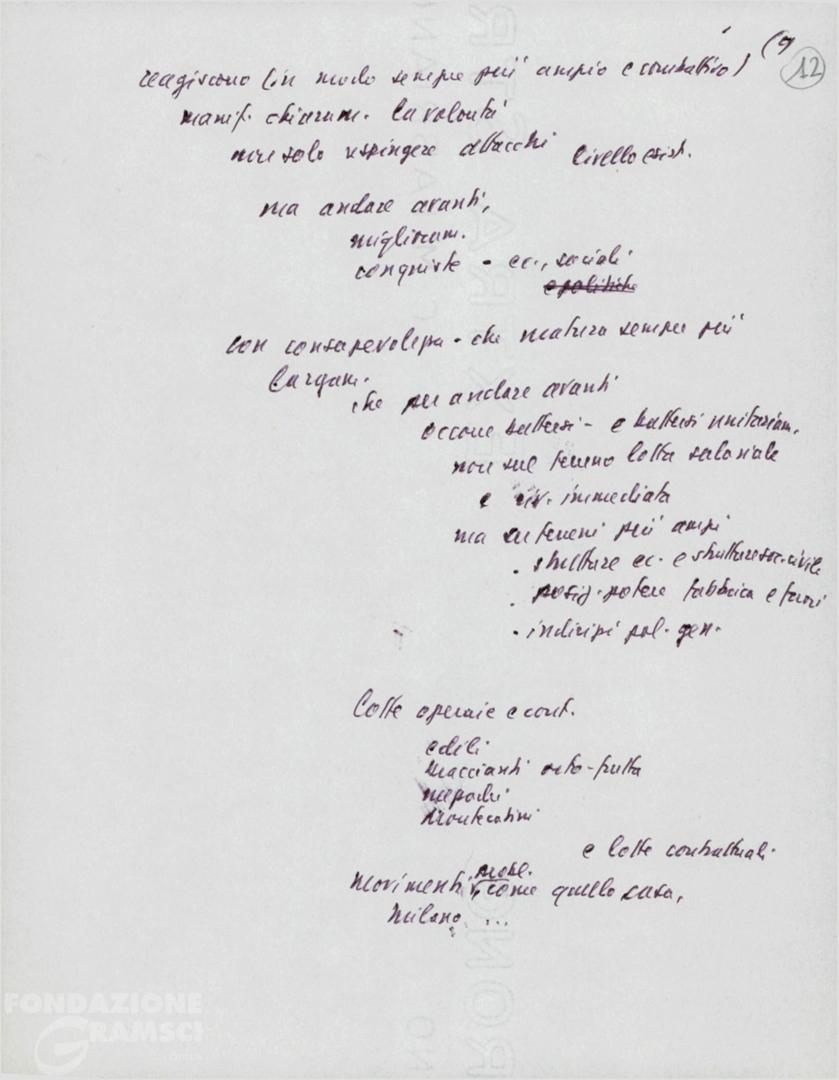 (9
12
reagiscono (in modo sempre più ampio e combattivo)
manif. chiaram. la volontà
non solo respingere attacchi livello esist.
ma andare avanti,
miglioram.
conquiste - ec., sociali
e politiche
con consapevolezza - che matura sempre più
largam.
che per andare avanti
occorre battersi - e battersi unitariam.
non sul terreno lotta salariale
e riv. immediata
ma su terreni più ampi
. strutture ec. e strutture soc. civile
. posiz. potere fabbrica e fuori
. indirizzi pol. gen.
Lotte operaie e cont.
edili
braccianti orto-frutta
mezzadri
Montecatini
e lotte contrattuali.
mobil.
Movimenti, come quello casa,
Milano ...
FONDAZIONE
GRAMSCI